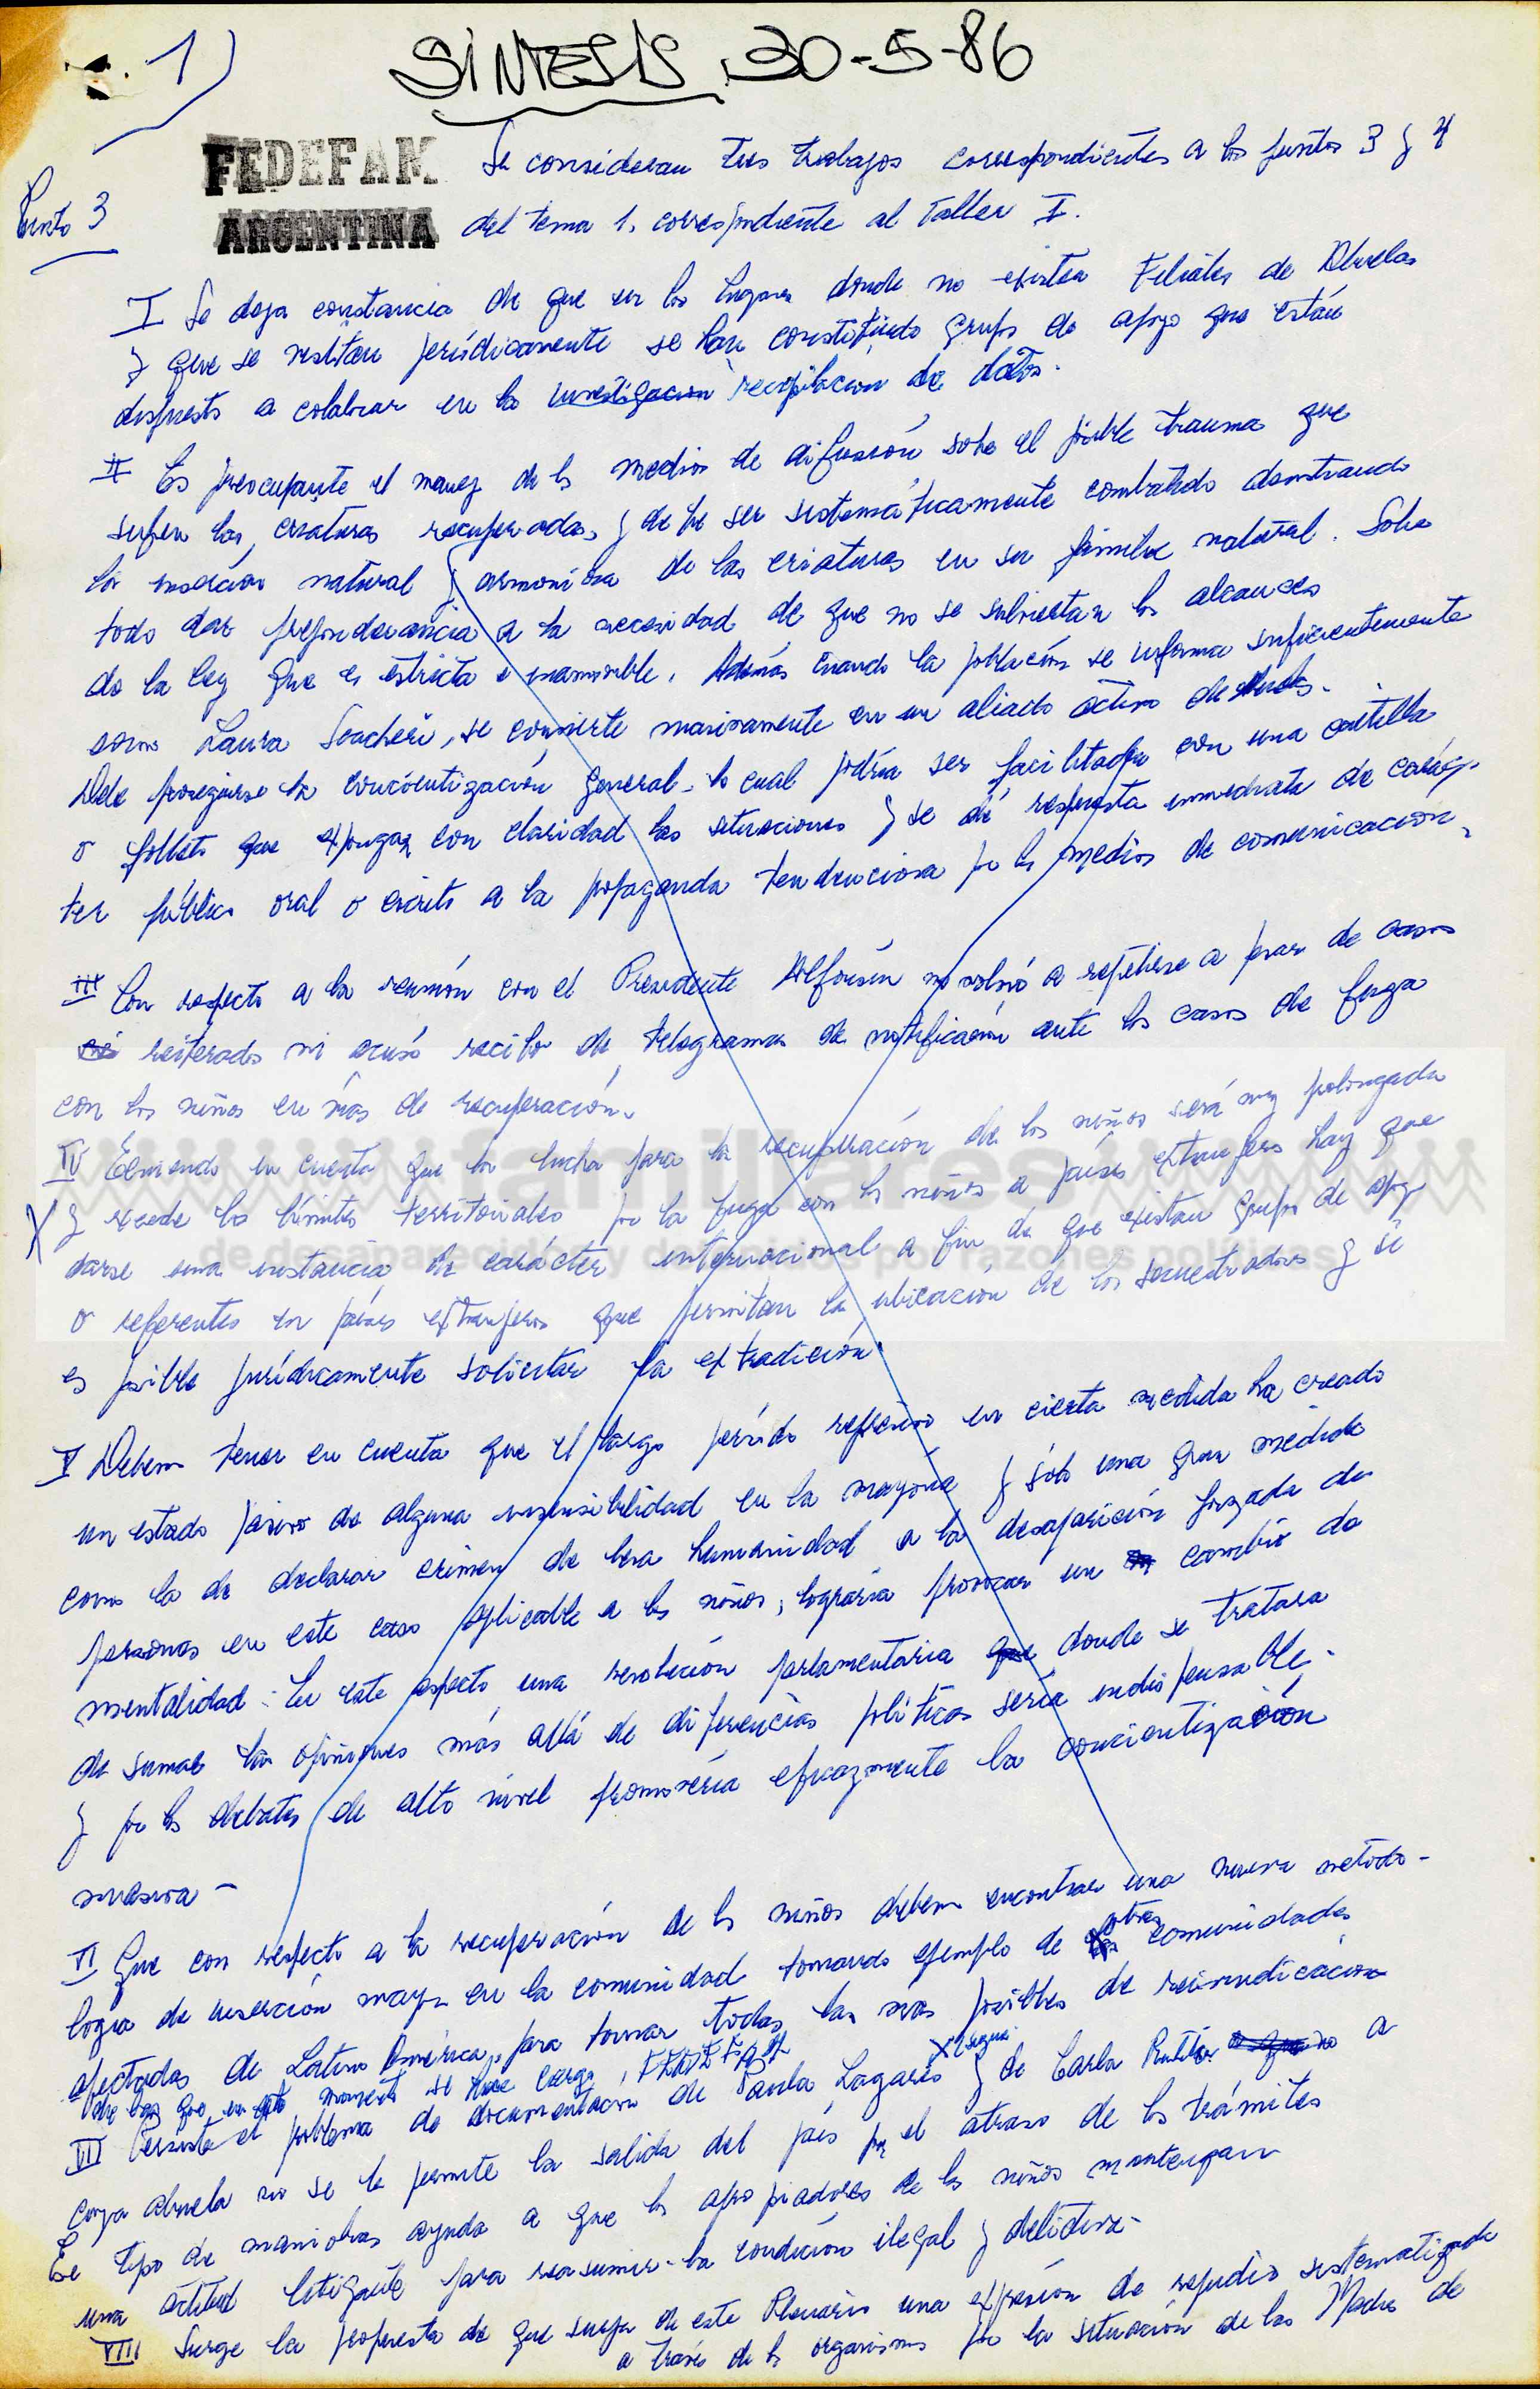 1)
SINTESIS 30-5-86
FEDEFAM
ARGENTINA
Punto 3
Se consideran tres trabajos correspondientes a los puntos 3 y 4
del tema 1. correspondiente al taller I.
I Se deja constancia de que en los lugares donde no existen Filiales de Abuelas
y que se visitan periódicamente se han constituido grupos de apoyo que están
dispuestos a colaborar en la investigación recopilación de datos.
II Es preocupante el manejo de los medios de difusión sobre el posible trauma que
sufren las criaturas recuperadas, y debe ser sistemáticamente combatido demostrando
la inserción natural y armoniosa de las criaturas en su familia natural. Sobre
todo dar preponderancia a la necesidad de que no se subviertan los alcances
de la ley que es estricta e inamovible. Además cuando la población se informa suficientemente
como Laura Scacheri, se convierte masivamente en un aliado activo de
Debe proseguirse la concientización general lo cual podría ser facilitada con una cartilla
o folleto que expongan con claridad las situaciones y se dé respuesta inmediata de carác-
ter público oral o escrito a la propaganda tendenciosa por los medios de comunicación.
III Con respecto a la reunión con el Presidente Alfonsín no volvió a repetirse a pesar de casos
reiterados ni acusó recibo de telegramas de notificación ante los casos de fuga
con los niños en vías de recuperación.
IV Teniendo en cuenta que la lucha para la recuperación de los niños será muy prolongada
X y excede los límites territoriales por la fuga con los niños a países extranjeros hay que
darse una instancia de carácter internacional a fin de que existan grupos de apoyo
o referentes en países extranjeros que permitan la ubicación de los secuestradores y si
es posible jurídicamente solicitar la extradición.
familiares
de desaparecidos y detenidos por razones políticas
V Debemos tener en cuenta que el largo período represivo en cierta medida ha creado
un estado pasivo de alguna insensibilidad en la mayoría y sólo una gran medida
como la de declarar crimen de lesa humanidad a la desaparición forzada de
personas en este caso aplicable a los niños, lograría provocar un cambio de
mentalidad. En este aspecto una resolución parlamentaria que donde se tratara
de sumar las opiniones más allá de diferencias políticas sería indispensable.
y por los debates de alto nivel promovería eficazmente la concientización
masiva -
VI Que con respecto a la recuperación de los niños debemos encontrar una nueva metodo-
logía de inserción mayor en la comunidad tomando ejemplo de otras comunidades
afectadas de Latino América, para tomar todas las vías posibles de reivindicación
de las que en este momento se hace cargo, FEDEFAM
VII Persiste el problema de documentación de Paula Logares y de Carla Rutilo a
cuya abuela no se le permite la salida del país por el atraso de los trámites
Ese tipo de maniobras ayuda a que los apropiadores de los niños mantengan
una actitud litigante para reasumir la condición ilegal y delictiva -
VIII Surge la propuesta de que surja de este Plenario una expresión de repudio sistematizada
a través de los organismos por la situación de las Madres de